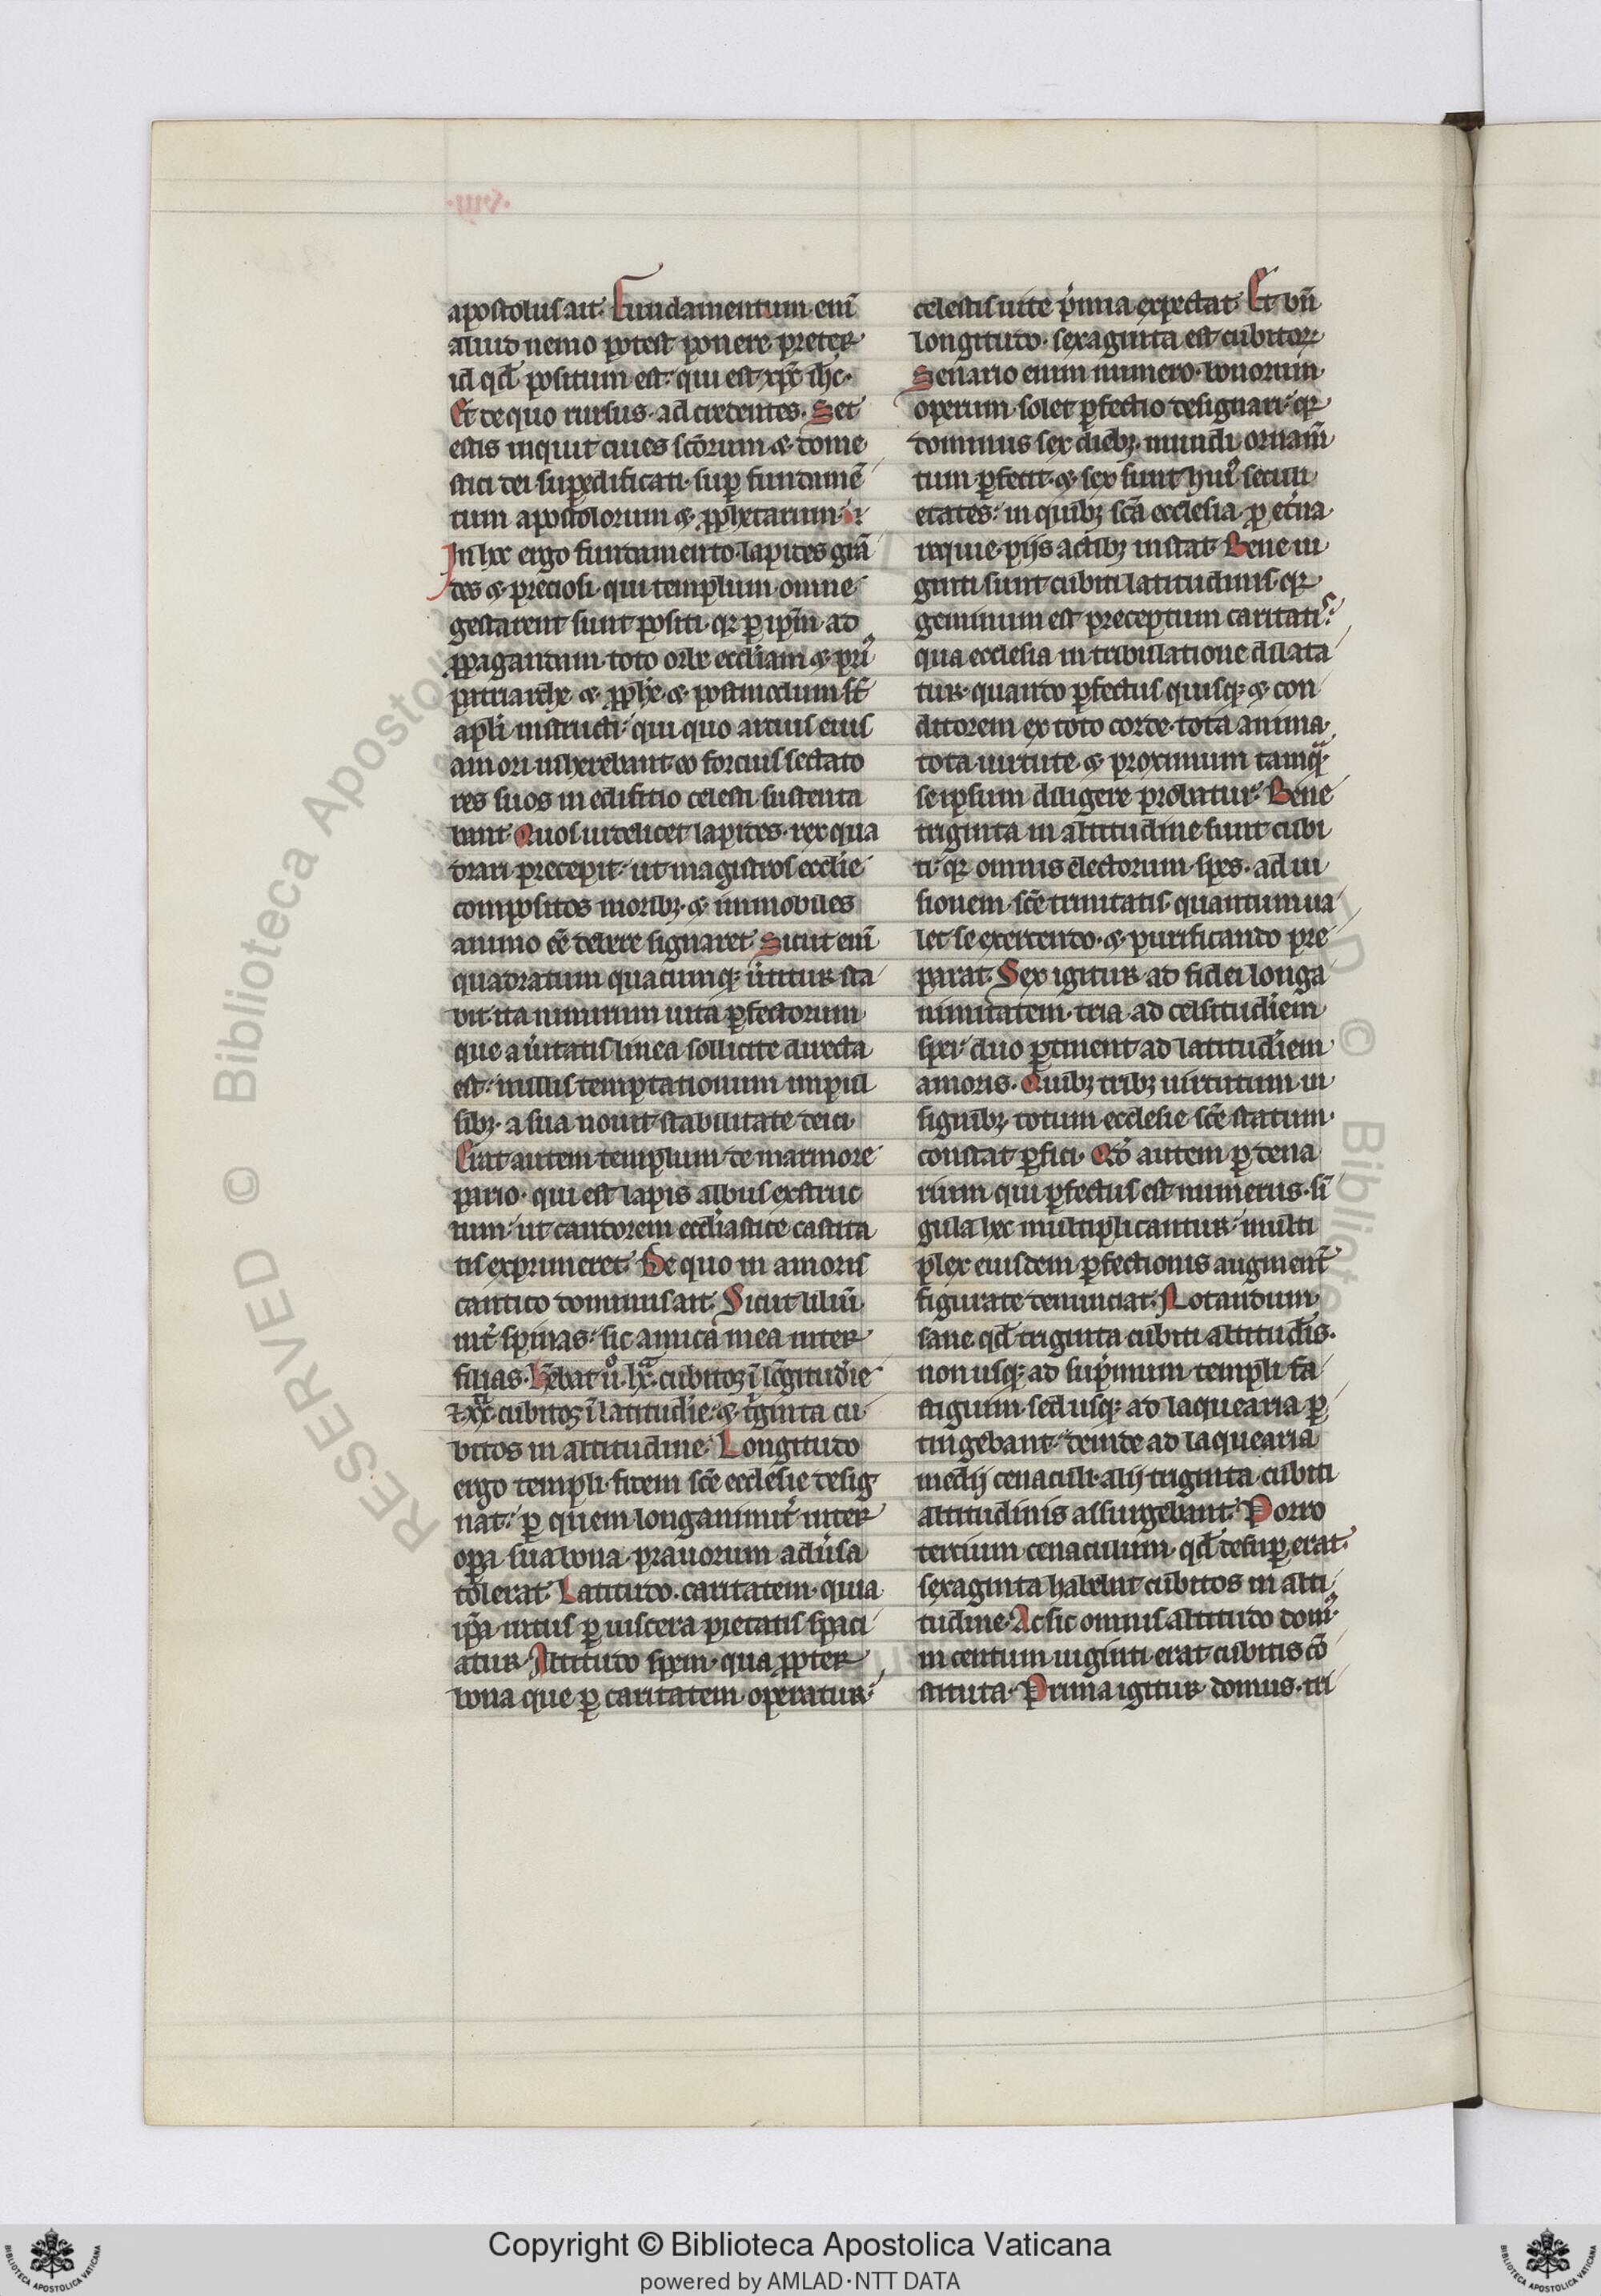 apostolus ait. Fundamentum eni᷃
aliud nemo potest ponere preter
id qd̄ positum est. qui est xp̄c ih̄c.
Et de quo rursus. ad credentes. Set
estis inquit ciues sc̄orum & dome
stici dei suꝑedificati. suꝑ fundamē
tum apostolorum & ꝓphetarum.
In hoc ergo fundamento lapides grā
des & preciosi. qui templum omne
gestarent sunt positi. qr ꝑ ip̄m ad
ꝓpagandam toto orbe eccl̄iam & pri᷒
patriarche & ꝓph̄e. & postmodum sc̄i
apl̄i instructi. qui quo artius eius
amori inherebant. eo forcius sectato
res suos in edificio celesti sustenta
bant. Quos uidelicet lapides. rex qua
drari precepit. ut magistros eccl̄ie
compositos moribꝫ. & immobiles
animo eē debere signaret. Sicut eni᷃
quadratum quacumqꝫ u̓titur sta
bit. ita nimirum uita ꝑfectorum
que a u̓itatis linea sollicite directa
est. nullis temptationum impul
sibꝫ. a sua nouit stabilitate deici.
Erat autem templum de marmore
pario. qui est lapis albus exstruc
tum. ut candorem eccl̄iastice castita
tis exprimeret. De quo in amoris
cantico dominus ait. Sicut liliū
int̓ spinas. sic amica mea inter
filias. Hēbat ů. lx. cubitoꝫ ī lōgitudīe
⁊ xx. cubitoꝫ ī latitudīe. & t̓ginta cu
bitos in altitudine. Longitudo
ergo templi. fidem sc̄e ecclesie desig
nat. ꝑ quem longanimit̓ inter
oꝑa sua bona. prauorum adu̓sa
tolerat. Latitudo. caritatem. quia
ip̄a intus ꝑ uiscera pietatis spaci
atur. Altitudo spem. qua ꝓpter
bona que ꝑ caritatem operatur.
celestis uite p̓mia expectat. Et bn̄
longitudo. sexaginta est cubitoꝝ.
Senario enim numero. bonorum
operum solet ꝑfectio designari. qr
dominus sex diebꝫ. mundi ornam̄
tum ꝑfecit. & sex sunt hui᷒ seculi
etates. in quibꝫ sc̄a ecclesia ꝓ et̓na
requie. pijs actibꝫ instat. Bene ui
ginti sunt cubiti latitudinis. qr
geminum est preceptum caritatis.
qua ecclesia in tribulatione dilata
tur. quando ꝑfectus quisqꝫ. & con
ditorem ex toto corde. tota anima.
tota uirtute. & proximum tamqͣ.
se ipsum diligere probatur. Bene
triginta in altitudine sunt cubi
ti. qr omnis electorum spes. ad ui
sionem sc̄e trinitatis quantum ua
let se exercendo. & purificando pre
parat. Sex igitur ad fidei longa
nimitatem. tria ad celsitudīem
spei. duo ꝑtinent ad latitudīem
amoris. Quibꝫ tribꝫ uirtutum in
signibꝫ. totum ecclesie sc̄e statum
constat ꝑfici. Qd̓ autem ꝑ dena
rium qui ꝑfectus est numerus. sī
gula hec multiplicantur. multi
plex eiusdem ꝑfectionis augment᷃
figurate denunciat. Notandum
sane qd̄ triginta cubiti altitudīs.
non usqꝫ ad sup̓mum templi fa
stigium. sed usqꝫ ad laquearia ꝑ
tingebant. deinde ad laquearia
medij cenaculi. alij triginta cubiti
altitudinis assurgebant. Porro
tertium cenaculum. qd̄ desuꝑ erat.
sexaginta habebat cubitos in alti
tudine. Ac sic omnis altitudo dom᷒.
in centum uiginti erat cubitis cō
stituta. Prima igitur domus. tri
RESERVED © Biblioteca Apostoli
D © Bibliote
Copyright © Biblioteca Apostolica Vaticana
powered by AMLAD·NTT DATA
BIBLIOTECA APOSTOLICA VATICANA
BIBLIOTECA APOSTOLICA VATICANA